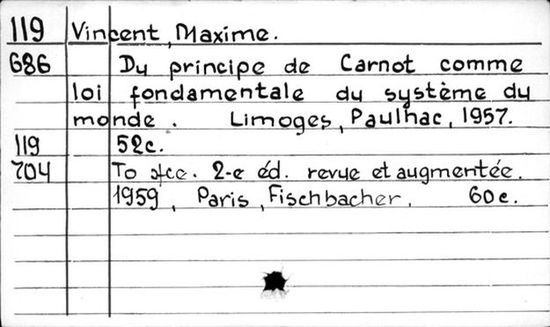 119 Vincent, Maxime.
686 Du principe de Carnot comme
loi fondamentale du système du
monde. Limoges, Paulhac, 1957.
119 52c.
704 То же. 2-е éd. revue et augmentée.
1959, Paris, Fischbacher. 60c.